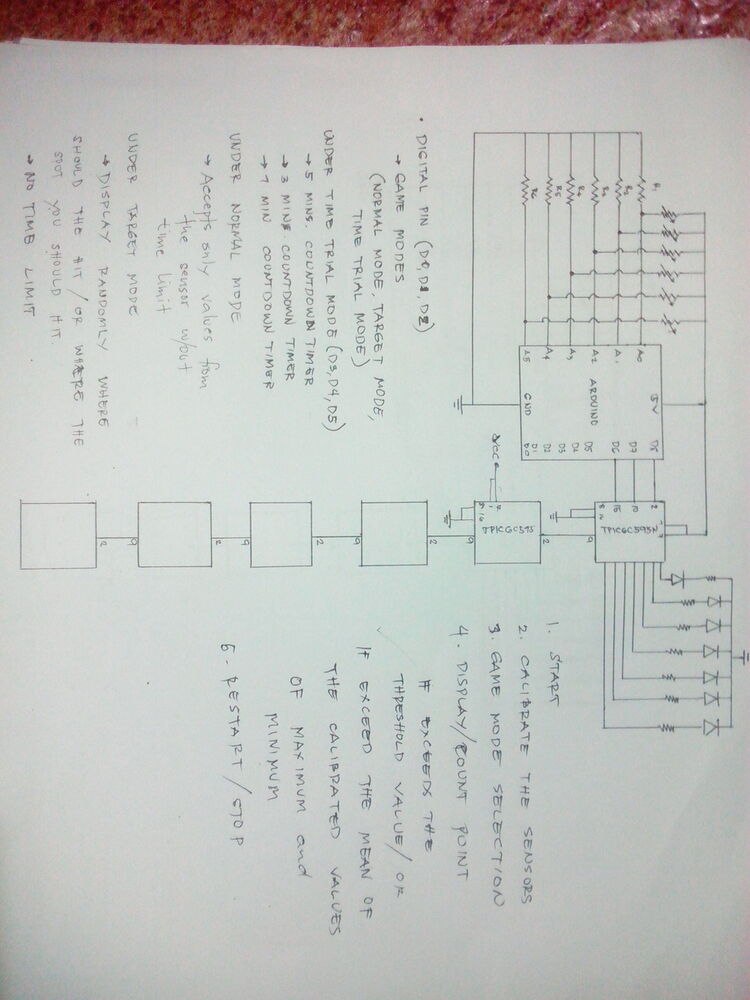 R1
R2
R3
R4
R5
R6
A0
A1
A2
A3
A4
A5
ARDUINO
5V
GND
D8
D7
D6
D5
D4
D3
D2
D1
D0
TPIC6C595N
2
9
TPIC6C595
5VDC
2
9
2
9
2
9
2
9
• DIGITAL PIN (D0, D1, D2)
→ GAME MODES
(NORMAL MODE, TARGET MODE,
TIME TRIAL MODE)
UNDER TIME TRIAL MODE (D3, D4, D5)
→ 5 MINS. COUNTDOWN TIMER
→ 3 MINS COUNTDOWN TIMER
→ 1 MIN COUNTDOWN TIMER
UNDER NORMAL MODE
→ Accepts only values from
the sensor w/out
time limit
UNDER TARGET MODE
→ DISPLAY RANDOMLY WHERE
SHOULD THE HIT / OR WHERE THE
SPOT YOU SHOULD HIT.
→ NO TIME LIMIT
1. START
2. CALIBRATE THE SENSORS
3. GAME MODE SELECTION
4. DISPLAY/COUNT POINT
IF EXCEEDS THE
THRESHOLD VALUE / OR
IF EXCEED THE MEAN OF
THE CALIBRATED VALUES
OF MAXIMUM and
MINIMUM
5. RESTART / STOP